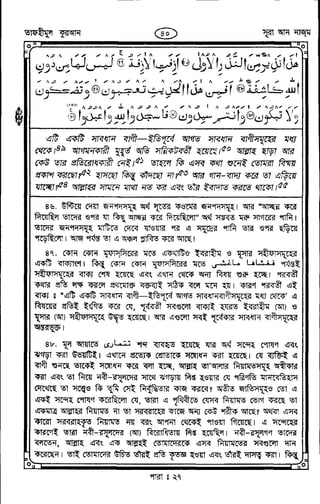 তাফহীমুল কুরআন ৪০ সূরা আন নাজম
هٰذَا نَذِيْرٌ مِّنَ النُّذُرِ الْاُوْلٰى ۝ اَزِفَتِ الْاٰزِفَةُ ۝ لَيْسَ لَهَا مِنْ دُوْنِ
اللّٰهِ كَاشِفَةٌ ۝ اَفَمِنْ هٰذَا الْحَدِيْثِ تَعْجَبُوْنَ ۝ وَتَضْحَكُوْنَ
وَلَا تَبْكُوْنَ ۝ وَاَنْتُمْ سٰمِدُوْنَ ۝ فَاسْجُدُوْا لِلّٰهِ وَاعْبُدُوْا ۝
এটি একটি সাবধান বাণী—ইতিপূর্বে আগত সাবধান বাণীসমূহের মধ্য
থেকে।৪৭ আগমনকারী মুহূর্ত অতি সন্নিকটবর্তী হয়েছে।৪৮ আল্লাহ ছাড়া আর
কেউ তার প্রতিরোধকারী নেই।৪৯ তাহলে কি এসব কথা শুনেই তোমরা বিস্ময়
প্রকাশ করছো?৫০ হাসছো কিন্তু কাঁদছো না?৫১ আর গান-বাদ্য করে তা এড়িয়ে
যাচ্ছো?৫২ আল্লাহর সামনে মাথা নত কর এবং তাঁর ইবাদাত করতে থাকো।৫৩
৪৬. উল্টিয়ে দেয়া জনপদসমূহ অর্থ লূতের কওমের জনপদসমূহ। আর "আচ্ছন্ন করে
দিয়েছিল তাদের ওপর যা কিছু আচ্ছন্ন করে দিয়েছিলো" অর্থ সম্ভবত মরু সাগরের পানি।
তাদের জনপদসমূহ মাটিতে দেবে যাওয়ার পর এ সমুদ্রের পানি তার ওপর ছড়িয়ে
পড়েছিলো। আজ পর্যন্ত তা এ অঞ্চল প্লাবিত করে আছে।
৪৭. কোন কোন মুফাস্সিরের মতে একথাটিও ইবরাহীম ও মূসার সহীফাসমূহের
একটি বাক্যাংশ। কিন্তু কোন কোন মুফাস্সিরের মতে فغشاها ماغشى পর্যন্তই
সহীফাসমূহের বাক্য শেষ হয়েছে এবং এখান থেকে অন্য বিষয় শুরু হচ্ছে। পরবর্তী
কথার প্রতি লক্ষ করলে প্রথমোক্ত বক্তব্যই সঠিক বলে মনে হয়। কারণ পরবর্তী এই
বাক্য : "এটি একটি সাবধান বাণী—ইতিপূর্বে আগত সাবধানবাণীসমূহের মধ্য থেকে" এ
বিষয়ের প্রতিই ইংগিত করে যে, পূর্ববর্তী সবগুলো বাক্যই হযরত ইবরাহীম (আ) ও
মূসার (আ) সহীফাসমূহে উদ্ধৃত হয়েছে। আর এগুলো সবই পূর্বেকার সাবধান বাণীসমূহের
অন্তর্ভুক্ত।
৪৮. মূল আয়াতে تتمارى শব্দ ব্যবহৃত হয়েছে যার অর্থ সন্দেহ পোষণ এবং
ঝগড়া করা উভয়টিই। এখানে প্রত্যেক শ্রোতাকে সম্বোধন করা হয়েছে। যে ব্যক্তিই এ
বাণী শুনছে তাকেই সম্বোধন করে বলা হচ্ছে, আল্লাহ তা'আলার নিয়ামতসমূহ অস্বীকার
করা এবং তা নিয়ে নবী-রসূলদের সাথে ঝগড়ায় লিপ্ত হওয়ার যে পরিণতি মানবেতিহাস
দেখেছে তা সত্ত্বেও কি তুমি সেই নির্বুদ্ধিতার কাজ করবে? অতীত জাতিসমূহও তো এ
একই সন্দেহ পোষণ করেছিলো যে, তারা এ পৃথিবীতে যেসব নিয়ামত ভোগ করছে তা
একমাত্র আল্লাহর নিয়ামত না তা সরবরাহের কাজে অন্য কেউ শরীক আছে? অথবা এসব
কারো সরবরাহকৃত নিয়ামত নয় বরং আপনা থেকেই পাওয়া গিয়েছে। এ সন্দেহের
কারণেই তারা নবী-রসূলদের (আ) বিরোধিতায় লিপ্ত হয়েছিল। নবী-রসূলগণ তাদের
বলতেন, আল্লাহ এবং এক আল্লাহই তোমাদেরকে এসব নিয়ামতের সবগুলো দান
করেছেন। তাই তোমাদের উচিত তাঁরই প্রতি কৃতজ্ঞ হওয়া এবং তাঁরই দাসত্ব করা। কিন্তু
পারা : ২৭